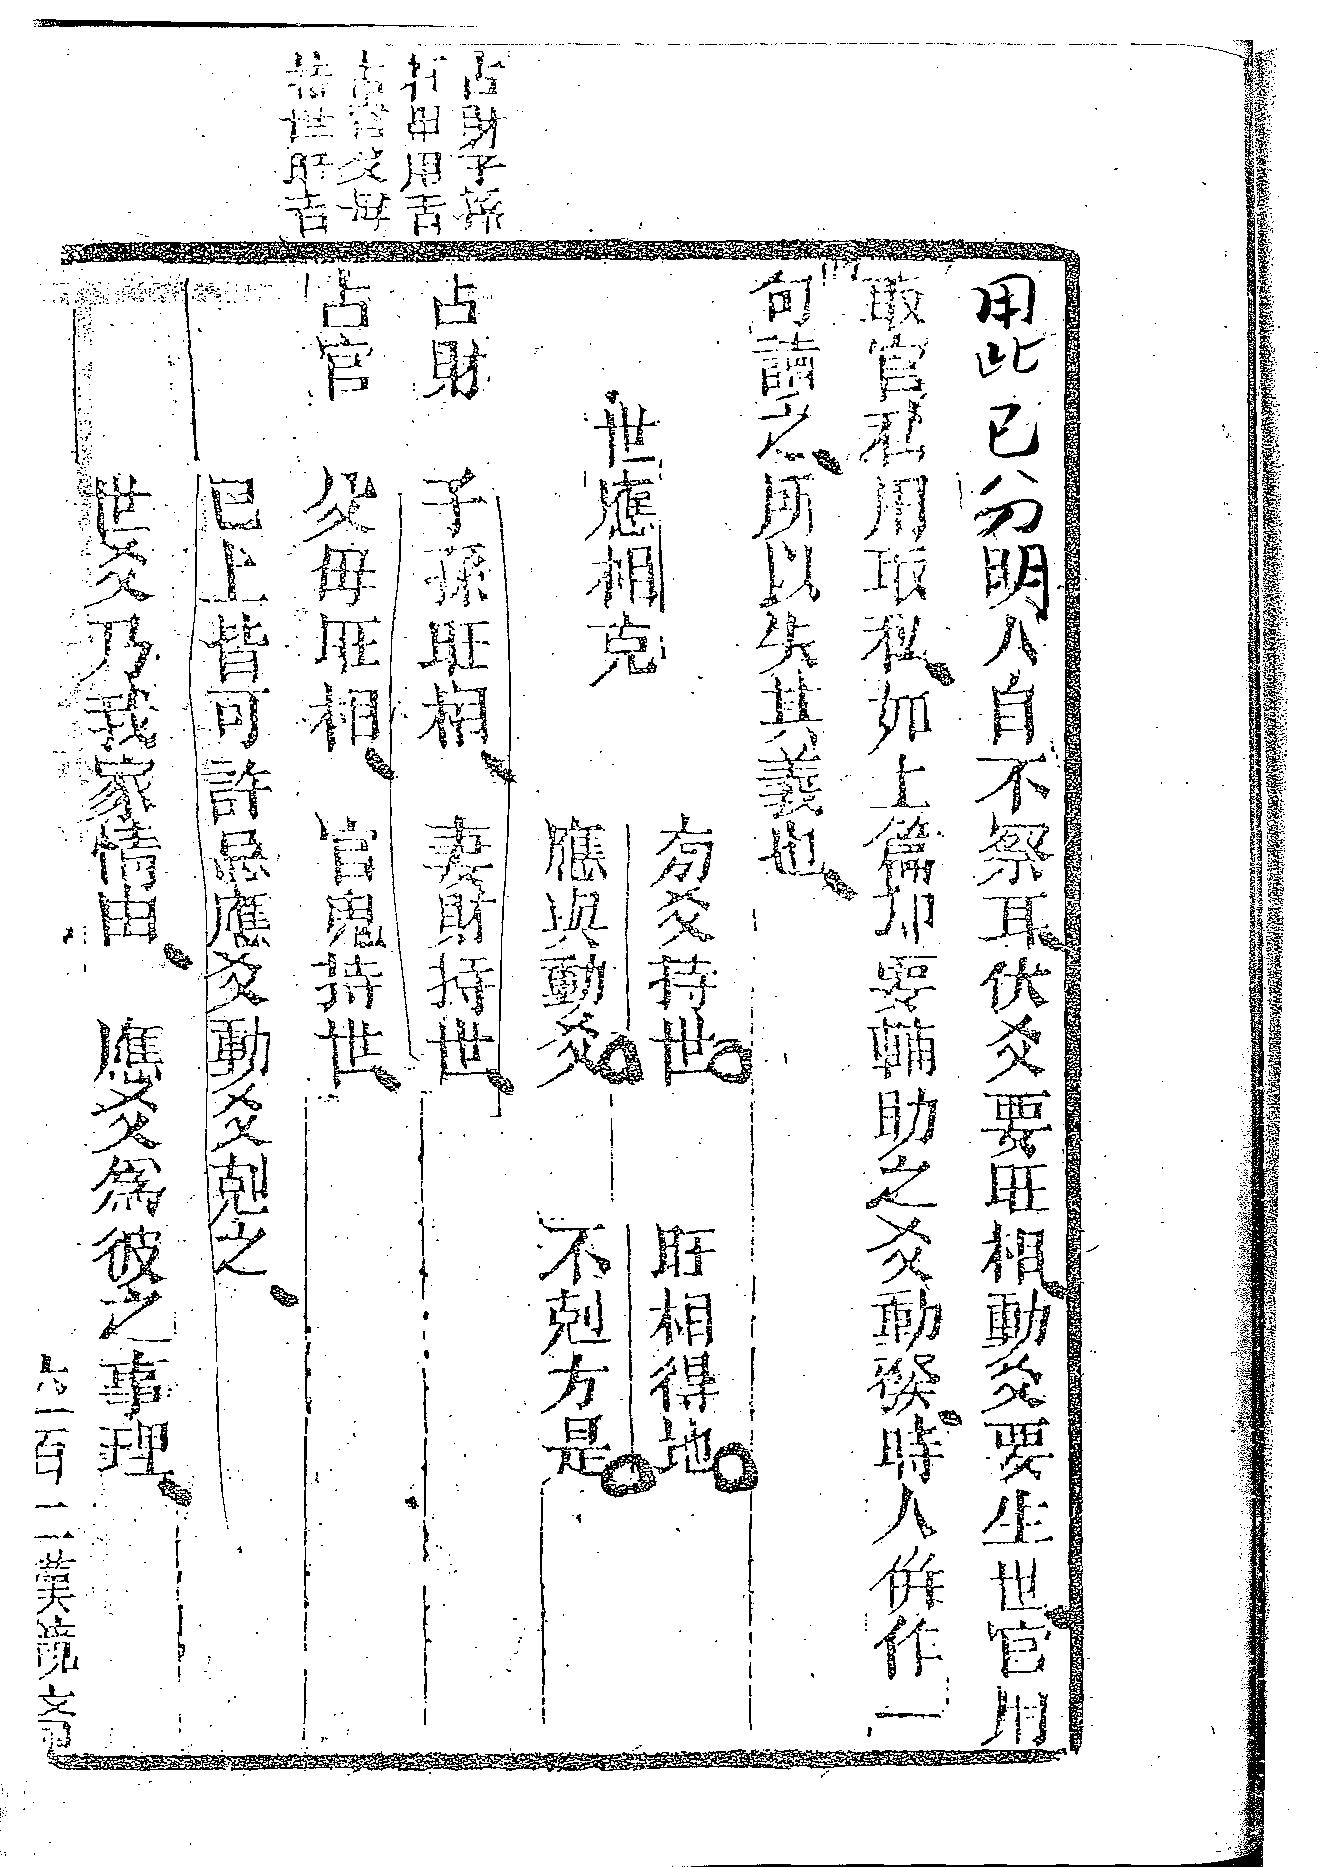 占財子孫
持世用吉
占官父母
持世旺吉
用此已分明人自不祭耳伏爻要旺相動爻要生世官用
取官私用取私如上篇却要輔助之爻動發時人併作一
句讀之所以失其義也
世應相克
夯爻持世
旺相得地
應與動爻
不剋方是
占財 子孫旺相 妻財持世
占官 父母旺相 官鬼持世
已上皆可許忌應爻動爻剋之
世爻乃我家情由 應爻為彼之事理
六百二